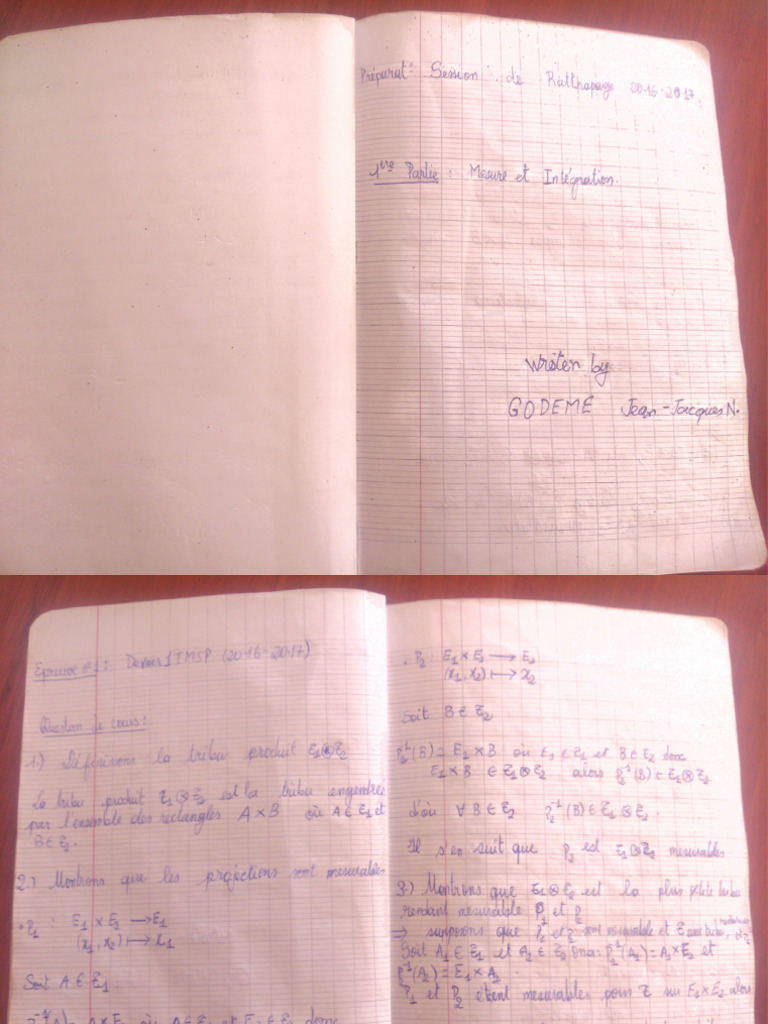 Préparat° Session de Rattrapage 2016-2017.
1ère Partie : Mesure et Intégration.
writen by
GODEME Jean-Jacques N.
Epreuve n°1 : Devoir 1 TMSP (2016-2017)
Question de cours :
1.) Définissons la tribu produit ℰ₁⊗ℰ₂
La tribu produit ℰ₁⊗ℰ₂ est la tribu engendrée
par l'ensemble des rectangles A×B où A∈ℰ₁ et
B∈ℰ₂.
2.) Montrons que les projections sont mesurables
• P₁ : E₁×E₂ → E₁
(x₁,x₂) ↦ x₁
Soit A∈ℰ₁
• P₂ : E₁×E₂ → E₂
(x₁,x₂) ↦ x₂
Soit B∈ℰ₂
P₂⁻¹(B) = E₁×B où E₁∈ℰ₁ et B∈ℰ₂ donc
E₁×B ∈ ℰ₁⊗ℰ₂ alors P₂⁻¹(B)∈ℰ₁⊗ℰ₂
d'où ∀B∈ℰ₂ P₂⁻¹(B)∈ℰ₁⊗ℰ₂.
Il s'en suit que P₂ est ℰ₁⊗ℰ₂ mesurable.
3.) Montrons que ℰ₁⊗ℰ₂ est la plus petite tribu
rendant mesurable P₁ et P₂
⇒ supposons que P₁ et P₂ sont mesurable et ℰ une tribu
Soit A₁∈ℰ₁ et A₂∈ℰ₂ Ona: P₁⁻¹(A₁) = A₁×E₂ et
P₂⁻¹(A₂) = E₁×A₂.
P₁ et P₂ étant mesurables pour ℰ sur E₁×E₂ alors